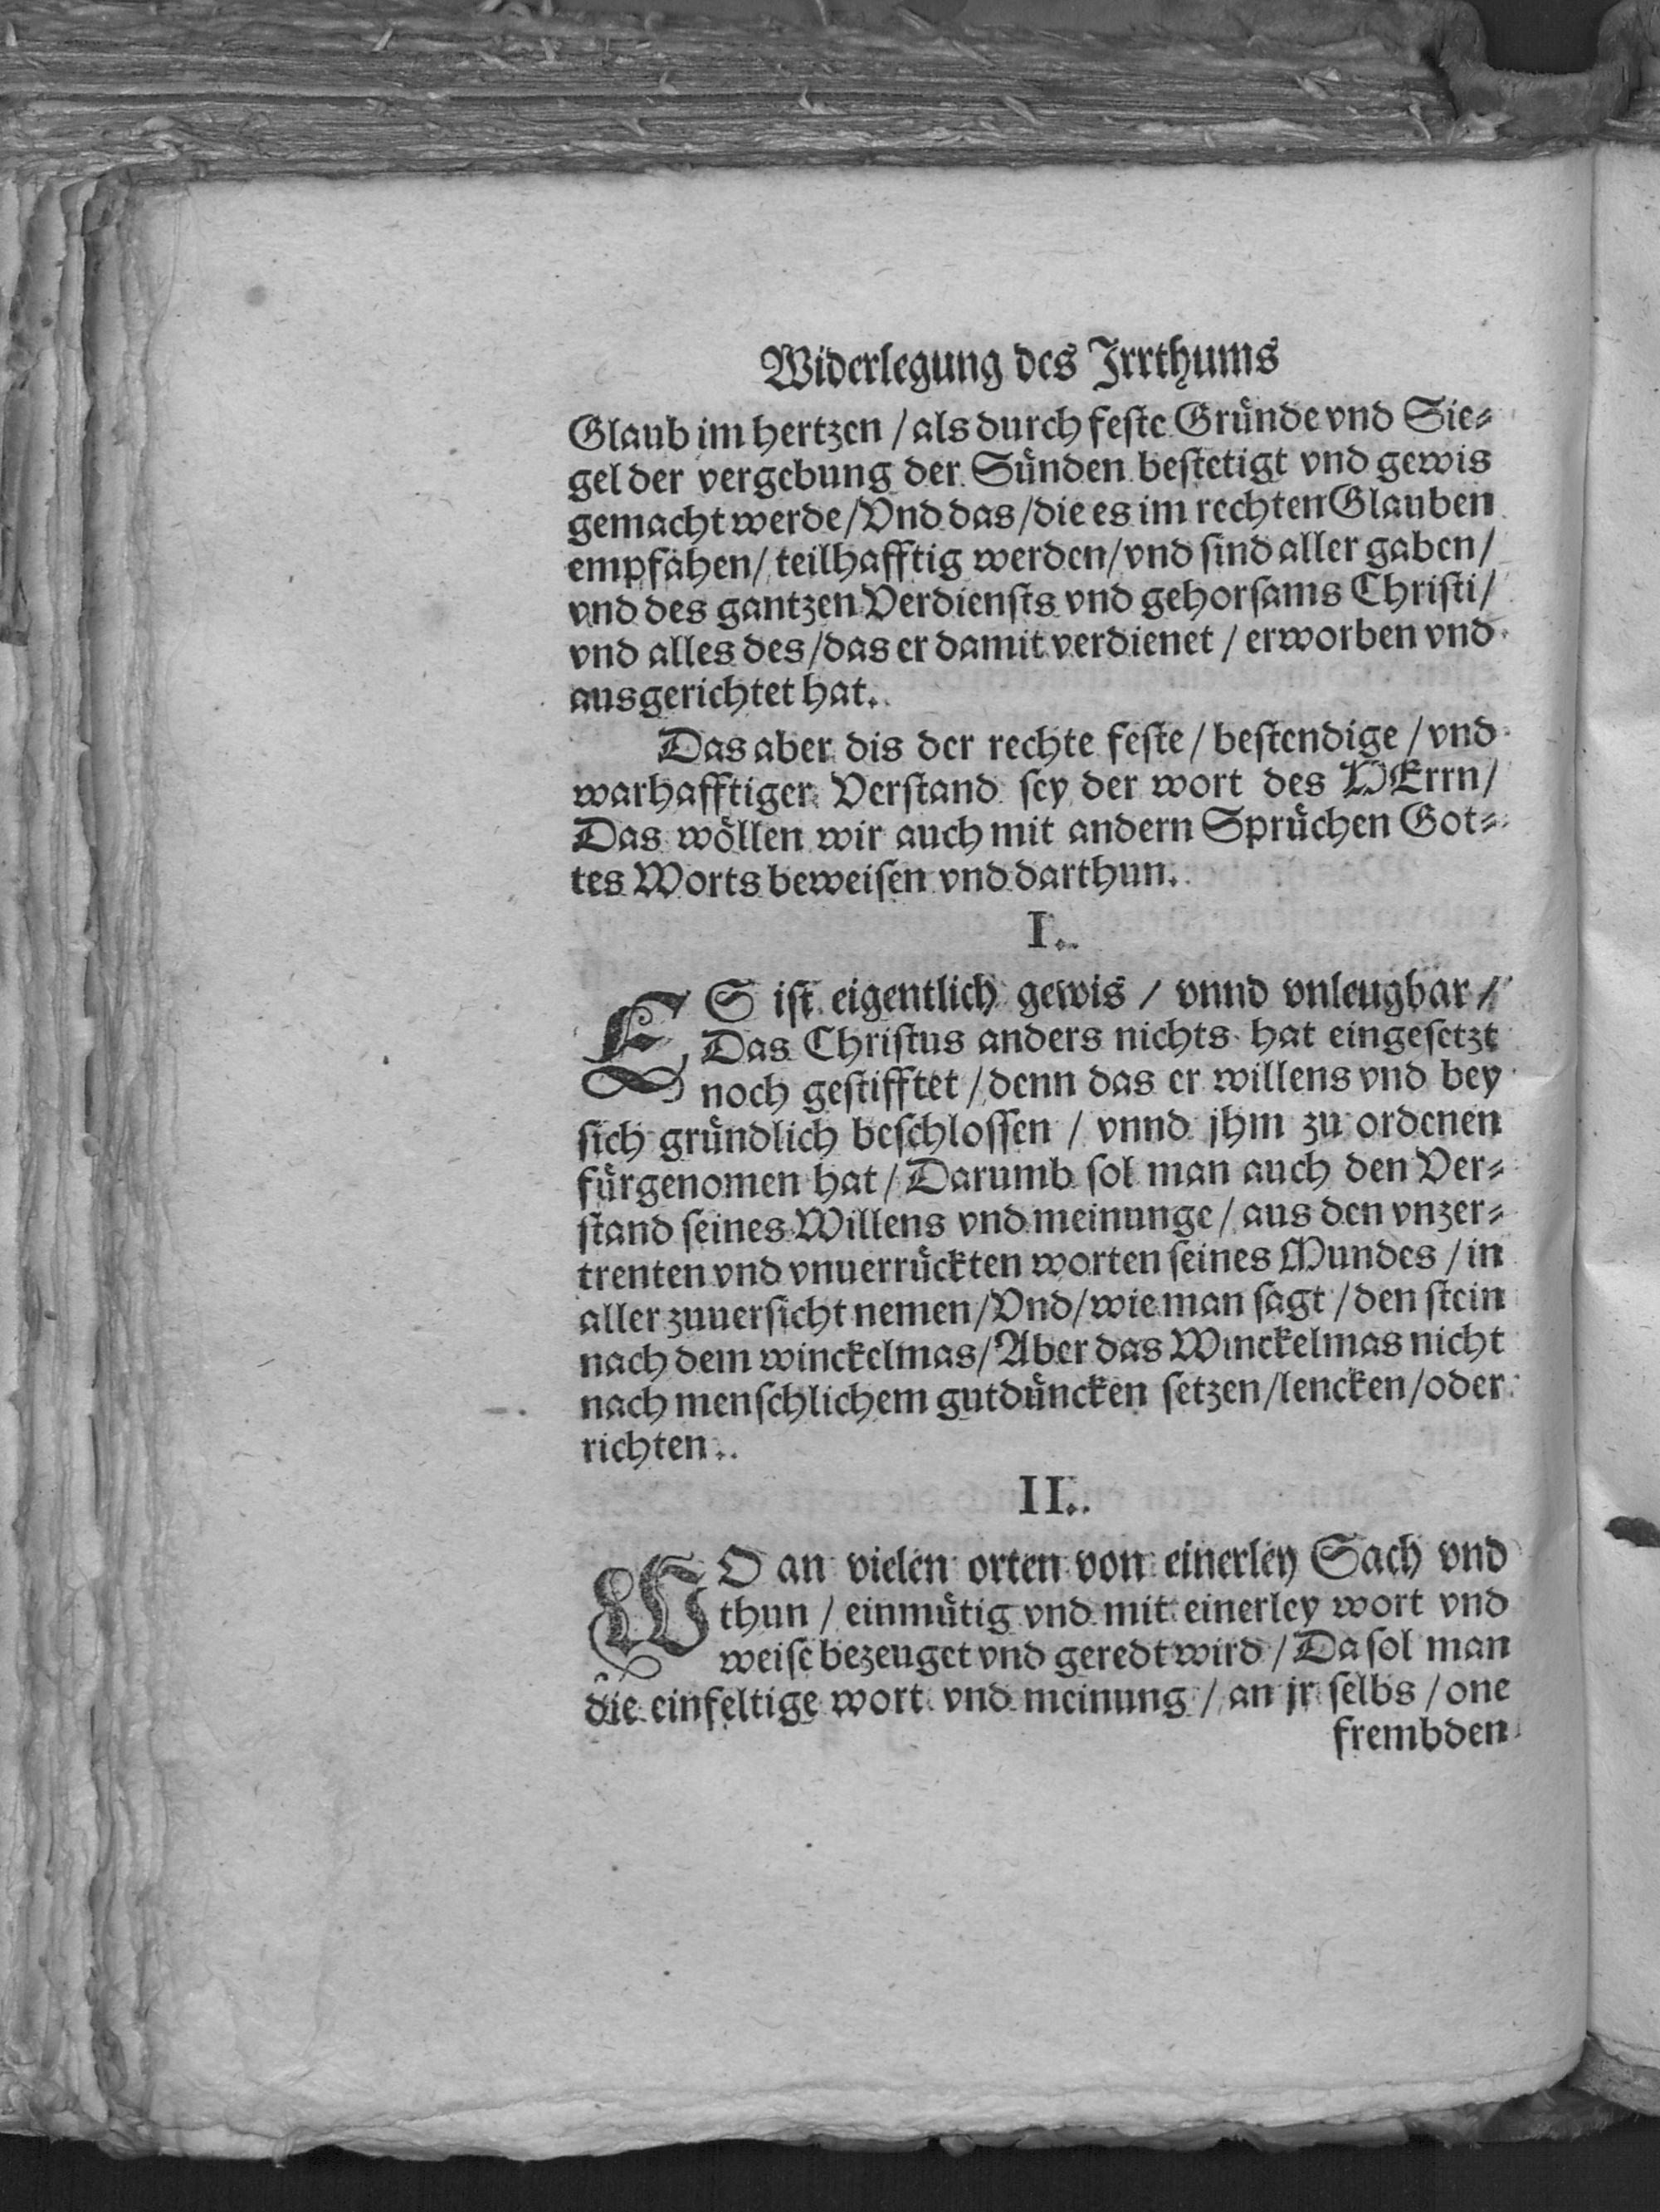 Widerlegung des Irrthums
Glaub im hertzen / als durch feste Gründe vnd Sie⸗
gel der vergebung der Sünden bestetigt vnd gewis
gemacht werde / Vnd das / die es im rechten Glauben
empfahen / teilhafftig werden / vnd sind aller gaben /
vnd des gantzen Verdiensts vnd gehorsams Christi /
vnd alles des / das er damit verdienet / erworben vnd
ausgerichtet hat.
Das aber dis der rechte feste / bestendige / vnd
warhafftiger Verstand sey der wort des HErrn /
Das wöllen wir auch mit andern Sprüchen Got⸗
tes Worts beweisen vnd darthun.
I.
ES ist eigentlich gewis / vnnd vnleugbar /
Das Christus anders nichts hat eingesetzt
noch gestifftet / denn das er willens vnd bey
sich gründlich beschlossen / vnnd jhm zu ordenen
fürgenomen hat / Darumb sol man auch den Ver⸗
stand seines Willens vnd meinunge / aus den vnzer⸗
trenten vnd vnuerrückten worten seines Mundes / in
aller zuuersicht nemen / Vnd / wie man sagt / den stein
nach dem winckelmas / Aber das Winckelmas nicht
nach menschlichem gutdüncken setzen / lencken / oder
richten.
II.
WO an vielen orten von einerley Sach vnd
thun / einmütig vnd mit einerley wort vnd
weise bezeuget vnd geredt wird / Da sol man
die einfeltige wort vnd meinung / an jr selbs / one
frembden